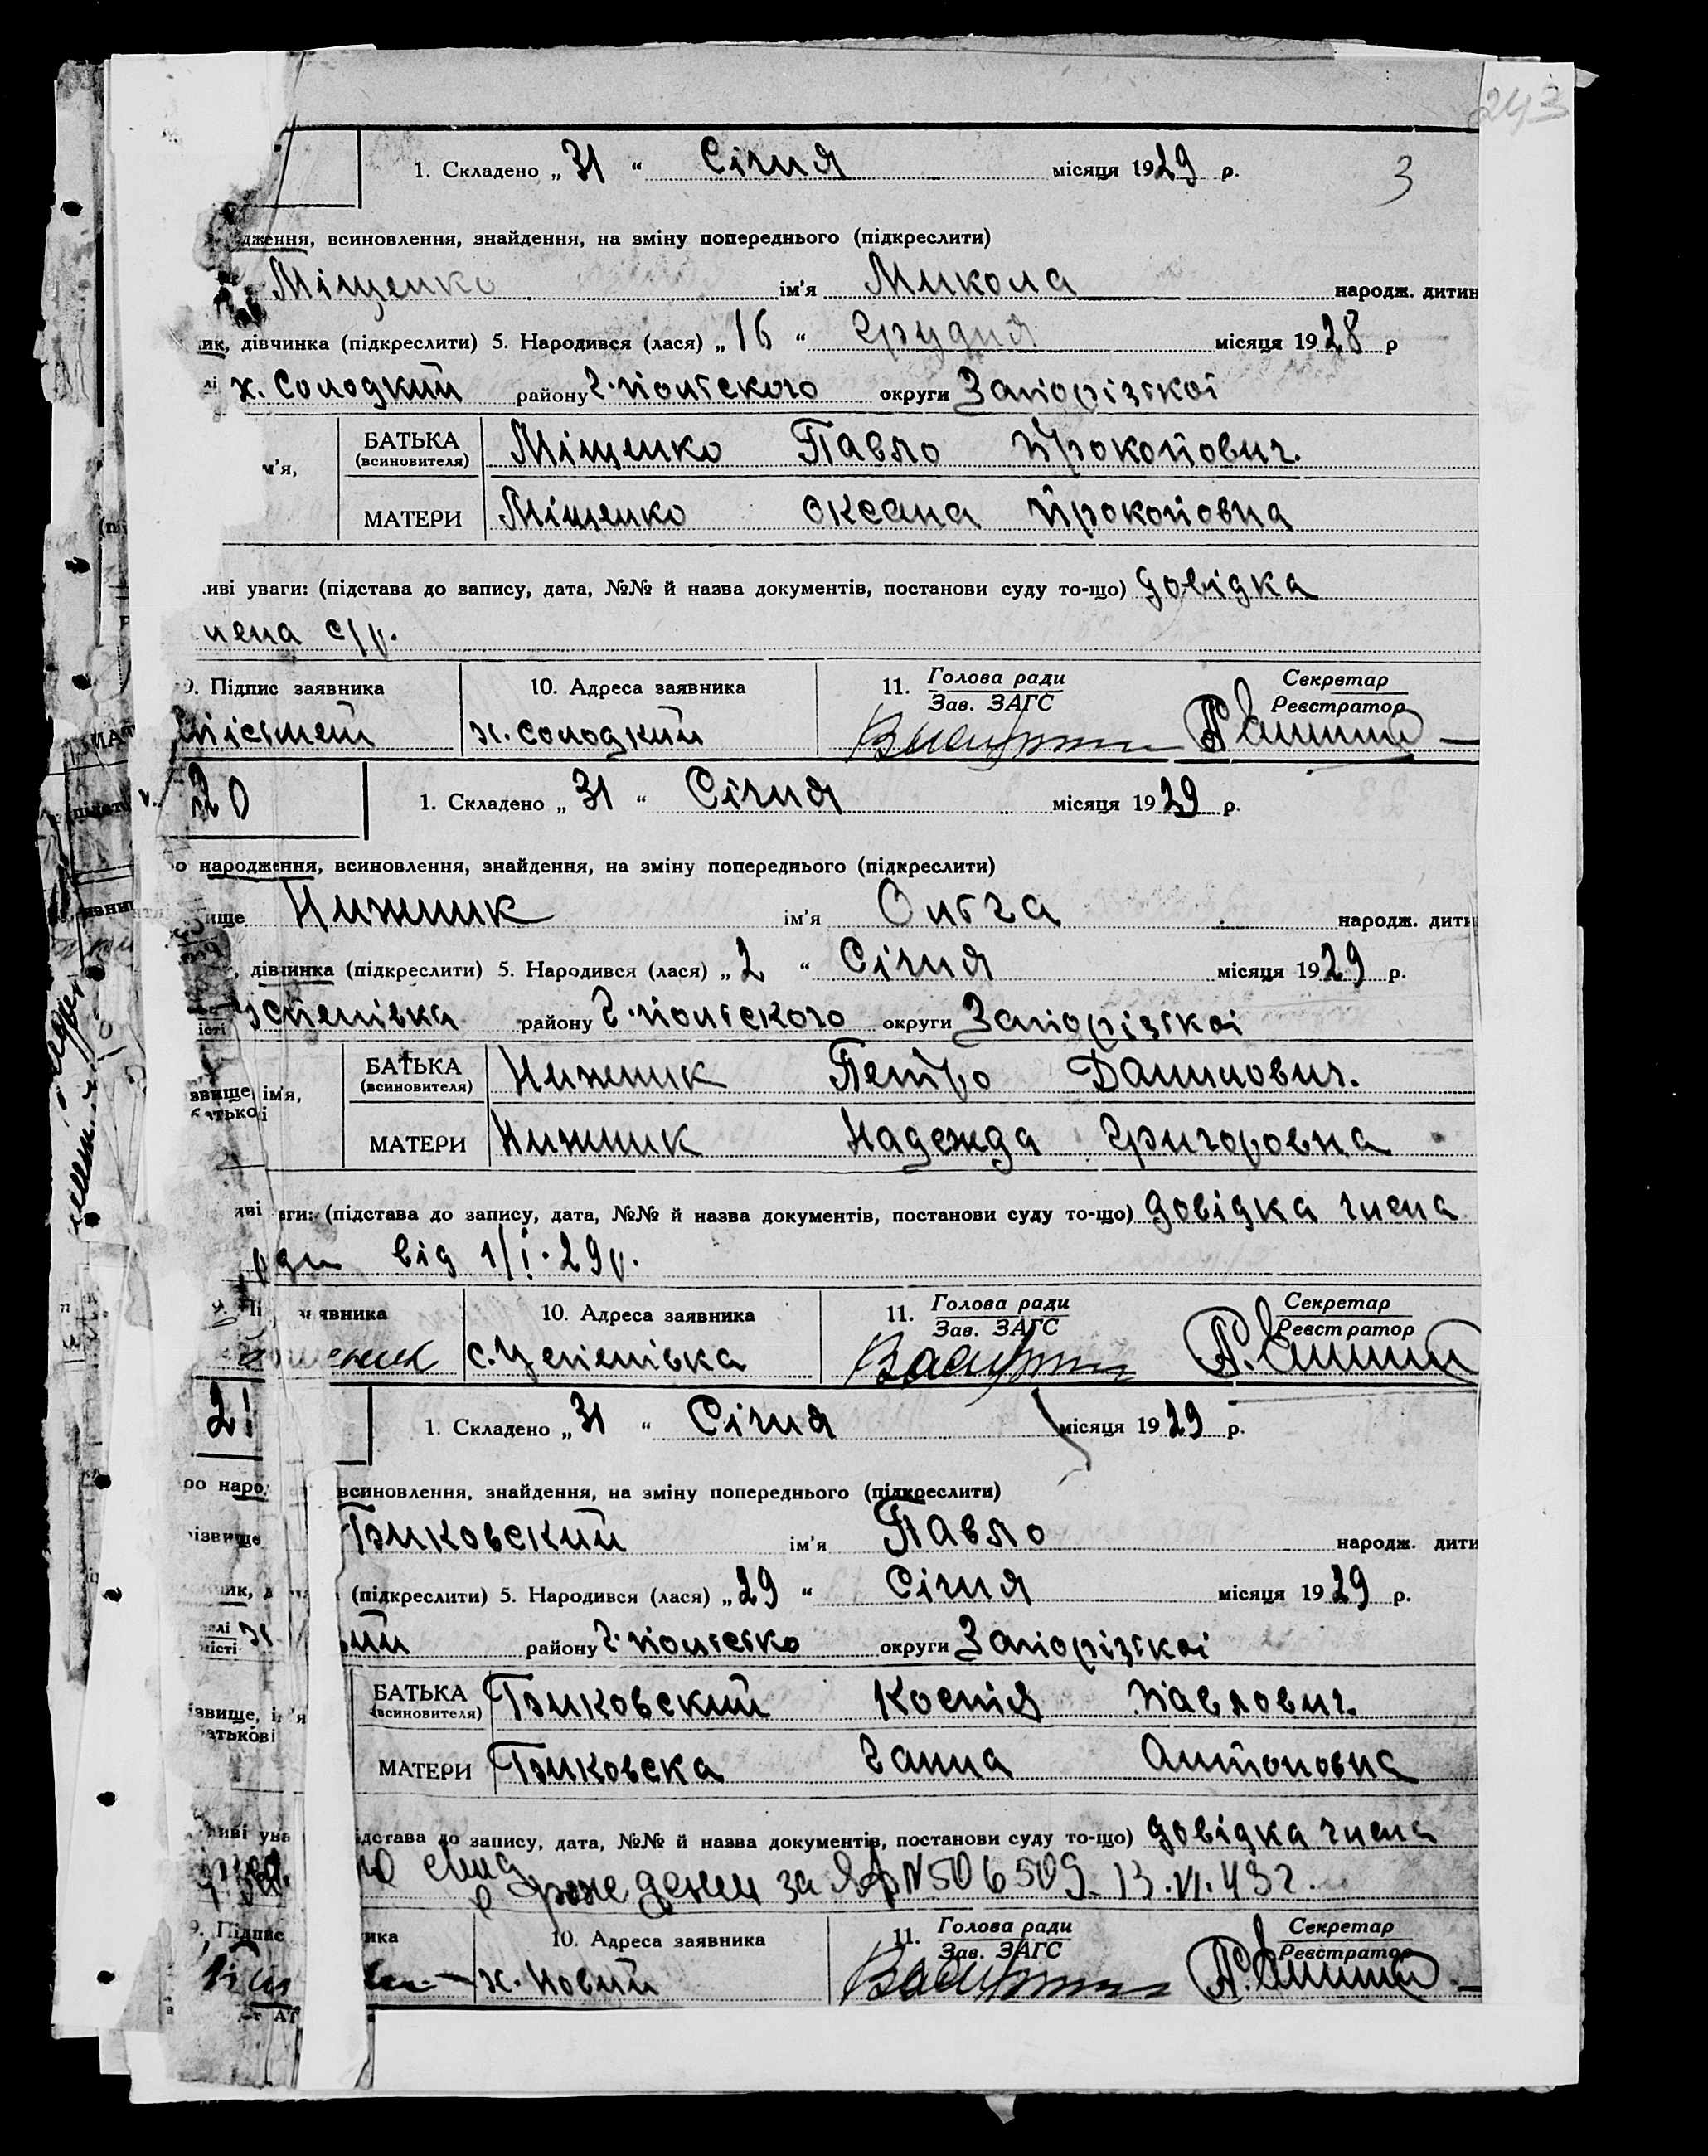 243
3
1. Складено „ 31 “ Січня місяця 1929 р.
дження, всиновлення, знайдення, на зміну попереднього (підкреслити)
Міщенко ім'я Микола народж. дитин
ик, дівчинка (підкреслити) 5. Народився (лася) „ 16 “ Грудня місяця 1928 р
лі х. Солодкий району Г-Польского округи Запорізскої
м'я, БАТЬКА (всиновителя) Міщенко Павло Прокопович.
МАТЕРИ Міщенко Оксана Прокоповна
иві уваги: (підстава до запису, дата, №№ й назва документів, постанови суду то-що) довідка
члена с/р.
9. Підпис заявника 10. Адреса заявника 11. Голова ради Секретар
Зав. ЗАГС Реєстратор
х. Солодкий
20 1. Складено „ 31 “ Січня місяця 1929 р.
о народження, всиновлення, знайдення, на зміну попереднього (підкреслити)
ище Нижник ім'я Ольга народж. дити
, дівчинка (підкреслити) 5. Народився (лася) „ 2 “ Січня місяця 1929 р.
істі Успенівка району Г-Польского округи Запорізскої
звище, ім'я, БАТЬКА (всиновителя) Нижник Петро Данилович.
батькові
МАТЕРИ Нижник Надежда Григоровна
иві аги: (підстава до запису, дата, №№ й назва документів, постанови суду то-що) довідка члена
ради від 1/I-29р.
явника 10. Адреса заявника 11. Голова ради Секретар
Зав. ЗАГС Реєстратор
с. Успенівка
21 1. Складено „ 31 “ Січня місяця 1929 р.
ро наро всиновлення, знайдення, на зміну попереднього (підкреслити)
різвище Биковский ім'я Павло народж. дити
ик, (підкреслити) 5. Народився (лася) „ 29 “ Січня місяця 1929 р.
елі х. вий району Г-Польско округи Запорізскої
місті
ізвище, ім'я БАТЬКА (всиновителя) Биковский Костя Павлович.
батькові
МАТЕРИ Биковска Ганна Антоновна
иві ува ідстава до запису, дата, №№ й назва документів, постанови суду то-що) довідка члена
о рождении за ЯА N 506509 13.VI.43г.
9. Підпис ика 10. Адреса заявника 11. Голова ради Секретар
Зав. ЗАГС Реєстратор
х. Новий